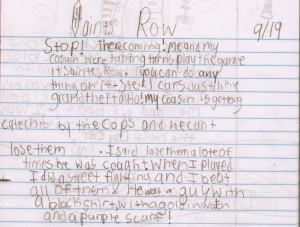 Saints Row 9/19
Stop! Therecoming! me and my
cosuin were taking turns play the game
it Saintes Row. You can do any
thing on it - Steel cars Just like
grandtheft auto! my cousin is geting
catechir by the cops and he cant
lose them. I said lose them a lote of
times he was cought. When I played
I did street fighting and I beat
all of them. He was a guy with
a black shirt, with a gold in watch
and a purple scarf!